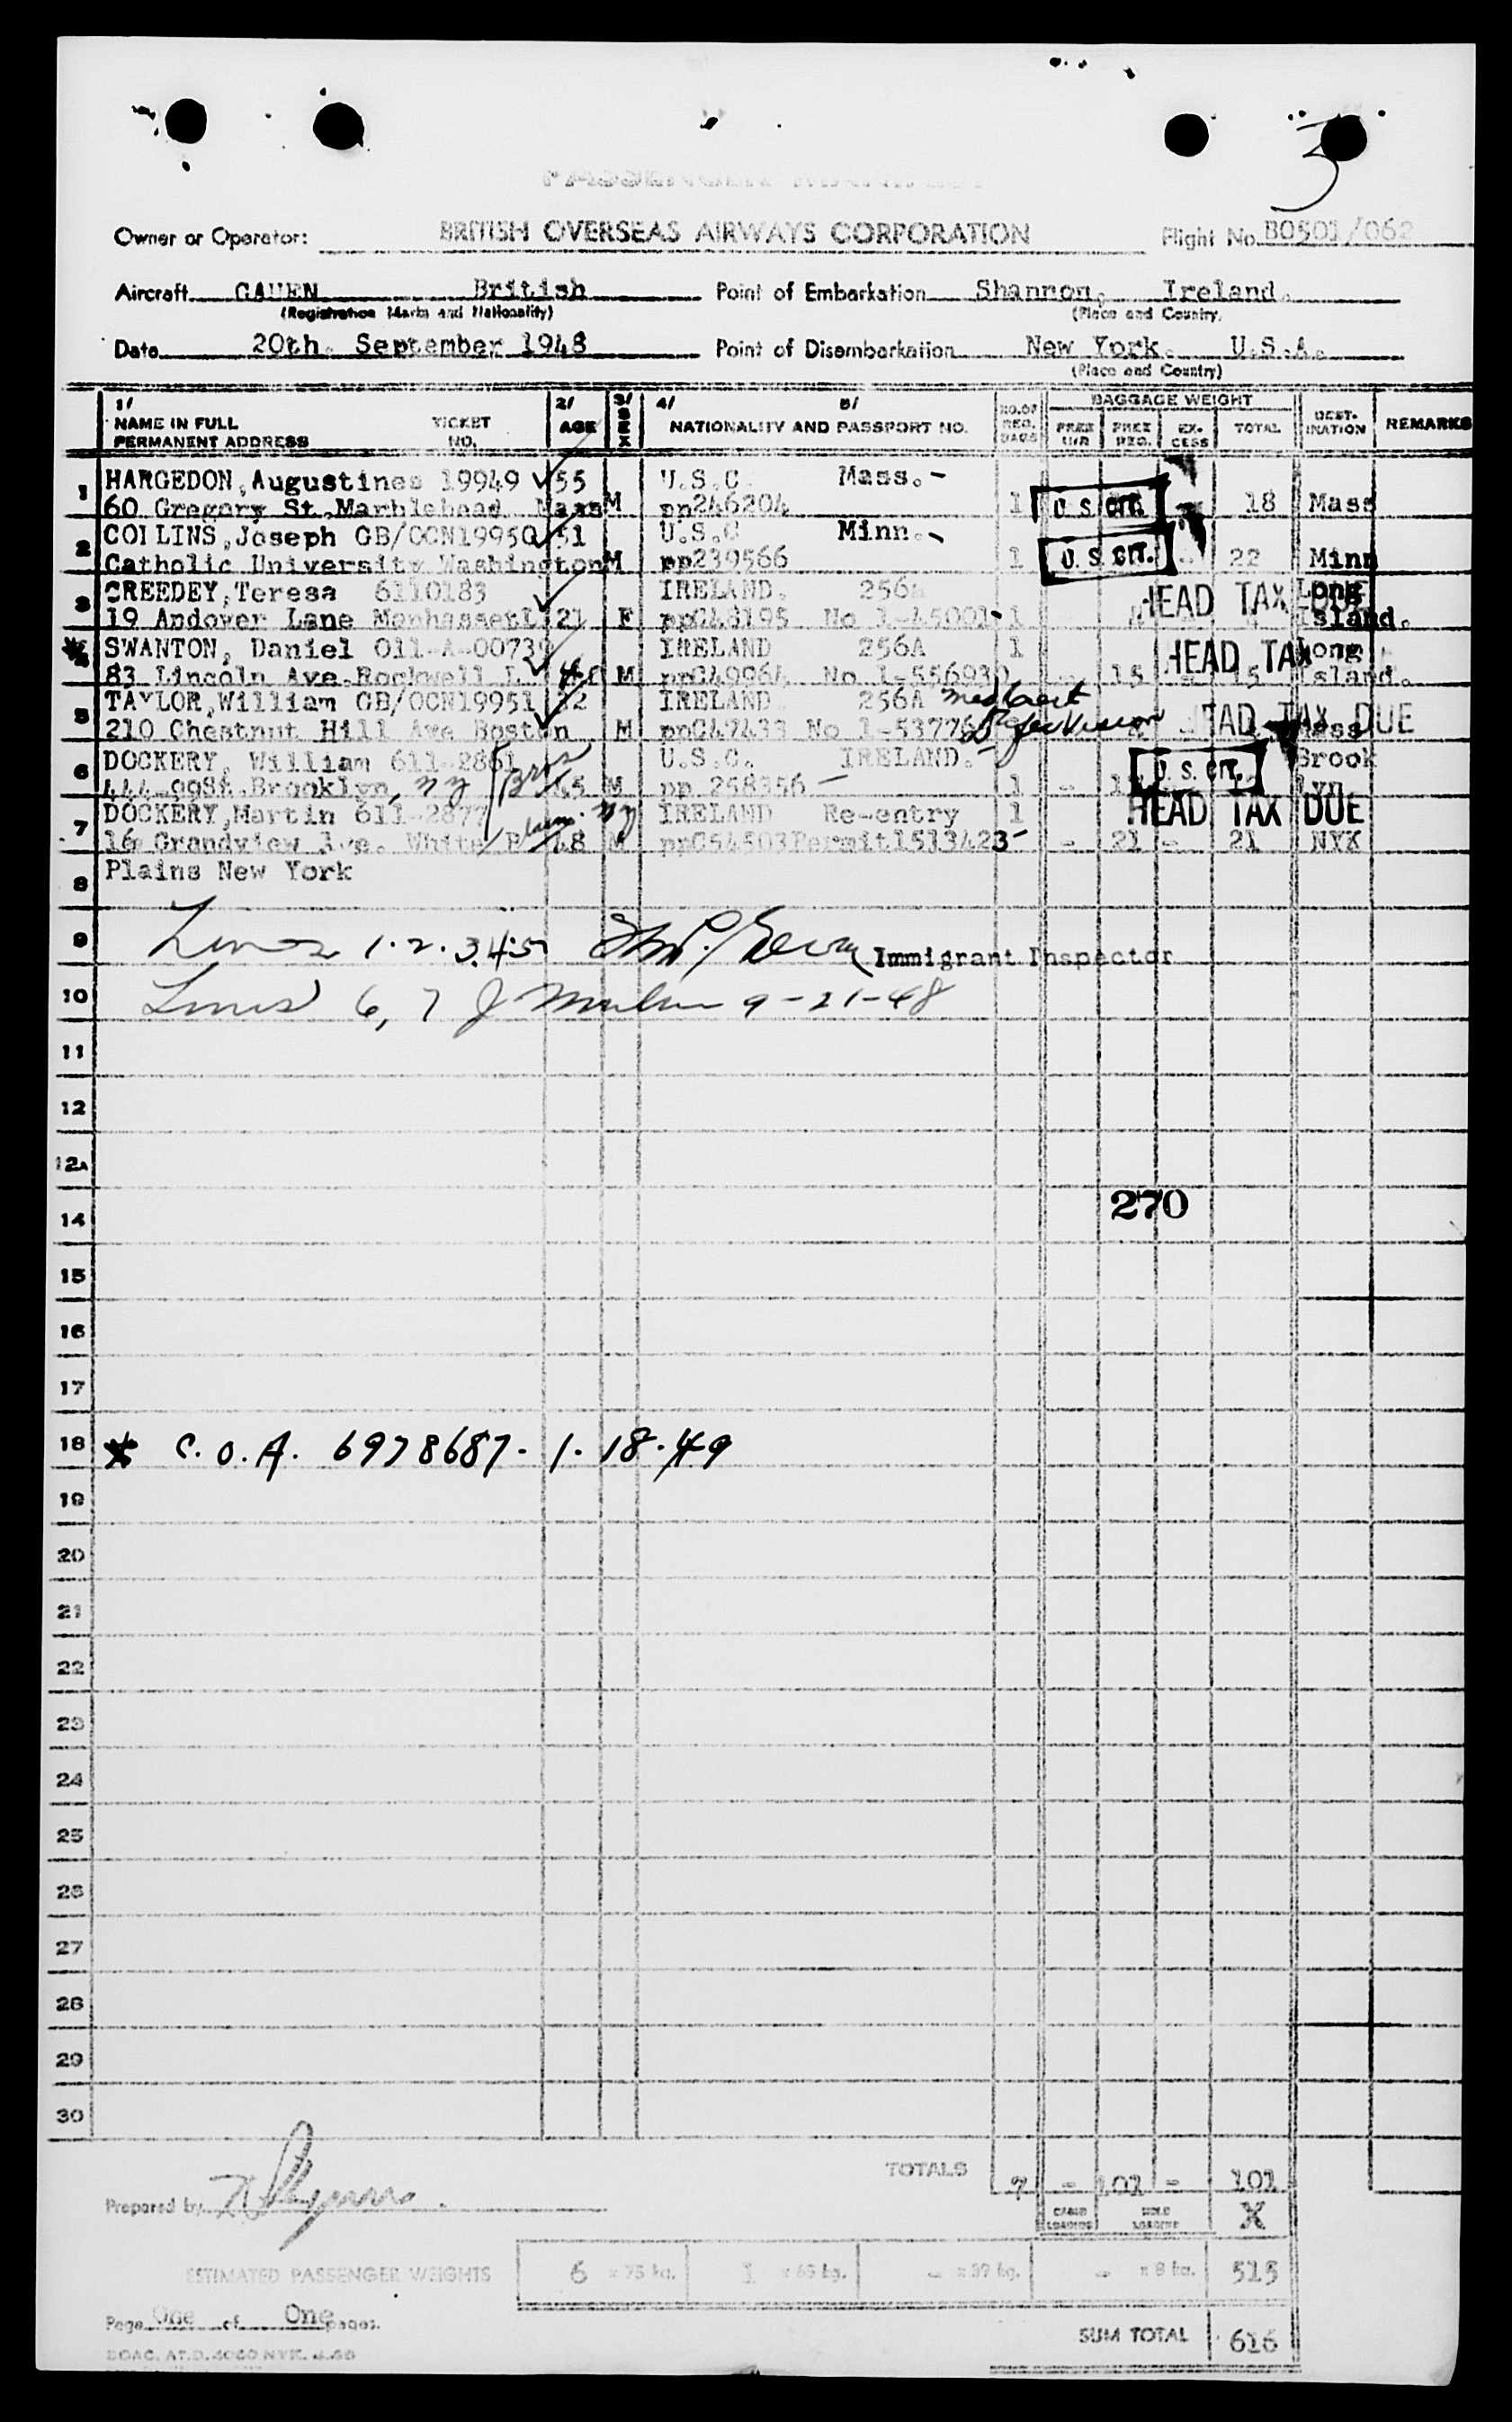 3
Owner or Operator: BRITISH OVERSEAS AIRWAYS CORPORATION Flight No. BO501/062
Aircraft GAHEN British Point of Embarkation Shannon, Ireland.
(Registration Marks and Nationality) (Place and Country)
Date 20th. September 1948 Point of Disembarkation New York. U.S.A.
(Place and Country)
1/ NAME IN FULL PERMANENT ADDRESS TICKET NO. 2/ AGE 3/ SEX 4/ 5/ NATIONALITY AND PASSPORT NO. NO.OF REG. BAGS BAGGAGE WEIGHT FREE REG. EX-CESS TOTAL DEST-INATION REMARKS
1 HARGEDON, Augustines 19949 55 U.S.C. Mass. -
60 Gregory St. Marblehead Mass M pp246204 1 U.S. CIT. - 18 Mass
2 COLLINS, Joseph GB/OCN19950 51 U.S.C Minn. -
Catholic University Washington M pp239566 1 U.S. CIT. - 22 Minn
3 CREEDEY, Teresa 6110183 IRELAND. 256A HEAD TAX Long
19 Andover Lane Manhasset L 21 F ppC48195 No 1-45001- 1 Island.
* SWANTON, Daniel 011-A-00739 IRELAND 256A 1 HEAD TAX Long
83 Lincoln Ave. Rockwell L M ppC49964 No 1-556930 - 15 - 15 Island.
5 TAYLOR, William GB/OCN19951 IRELAND 256A med cert
210 Chestnut Hill Ave Boston M ppC47433 No 1-53776 HEAD TAX DUE Mass
6 DOCKERY, William 611-2861 U.S.C. IRELAND. U.S. CIT. Brook
444 99St. Brooklyn, NY 45 M pp 258356 - 1 - lyn
7 DOCKERY, Martin 611-2877 IRELAND Re-entry 1 HEAD TAX DUE
16 Grandview Ave. White P 48 M ppC54503 Permit1513423- - 21 - 21 NYK
8 Plains New York
9 Lines 1.2.3.4.5 Immigrant Inspector
10 Lines 6, 7 J 9-21-48
11
12
12A
14 270
15
16
17
18 * C.O.A. 6978687- 1.18.49
19
20
21
22
23
24
25
26
27
28
29
30
TOTALS 7 - 101 - 101
Prepared by CABIN LOADING HOLD LOADING X
ESTIMATED PASSENGER WEIGHTS 6 x 75 kg. 1 x 65 kg. - x 39 kg. - x 8 kg. 515
Page One of One pages.
SUM TOTAL 616